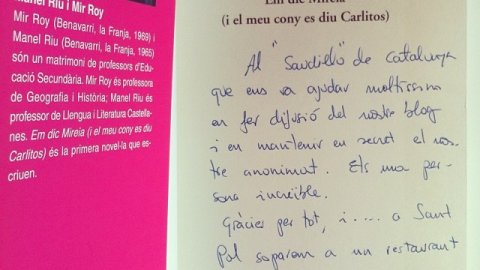 Manel Riu i Mir Roy
Mir Roy (Benavarri, la Franja, 1969) i
Manel Riu (Benavarri, la Franja, 1965)
són un matrimoni de professors d'Edu-
cació Secundària. Mir Roy és professora
de Geografia i Història; Manel Riu és
professor de Llengua i Literatura Castella-
nes. Em dic Mireia (i el meu cony es diu
Carlitos) és la primera novel·la que es-
criuen.
Em dic Mireia
(i el meu cony es diu Carlitos)
Al "Saudielló" de Catalunya
que ens va ajudar moltíssima
en fer difusió del nostre blog
i en mantenir en secret el nos-
tre anonimat. Ets una per-
sona increïble.
Gràcies per tot, i..... a Sant
Pol soparem a un restaurant